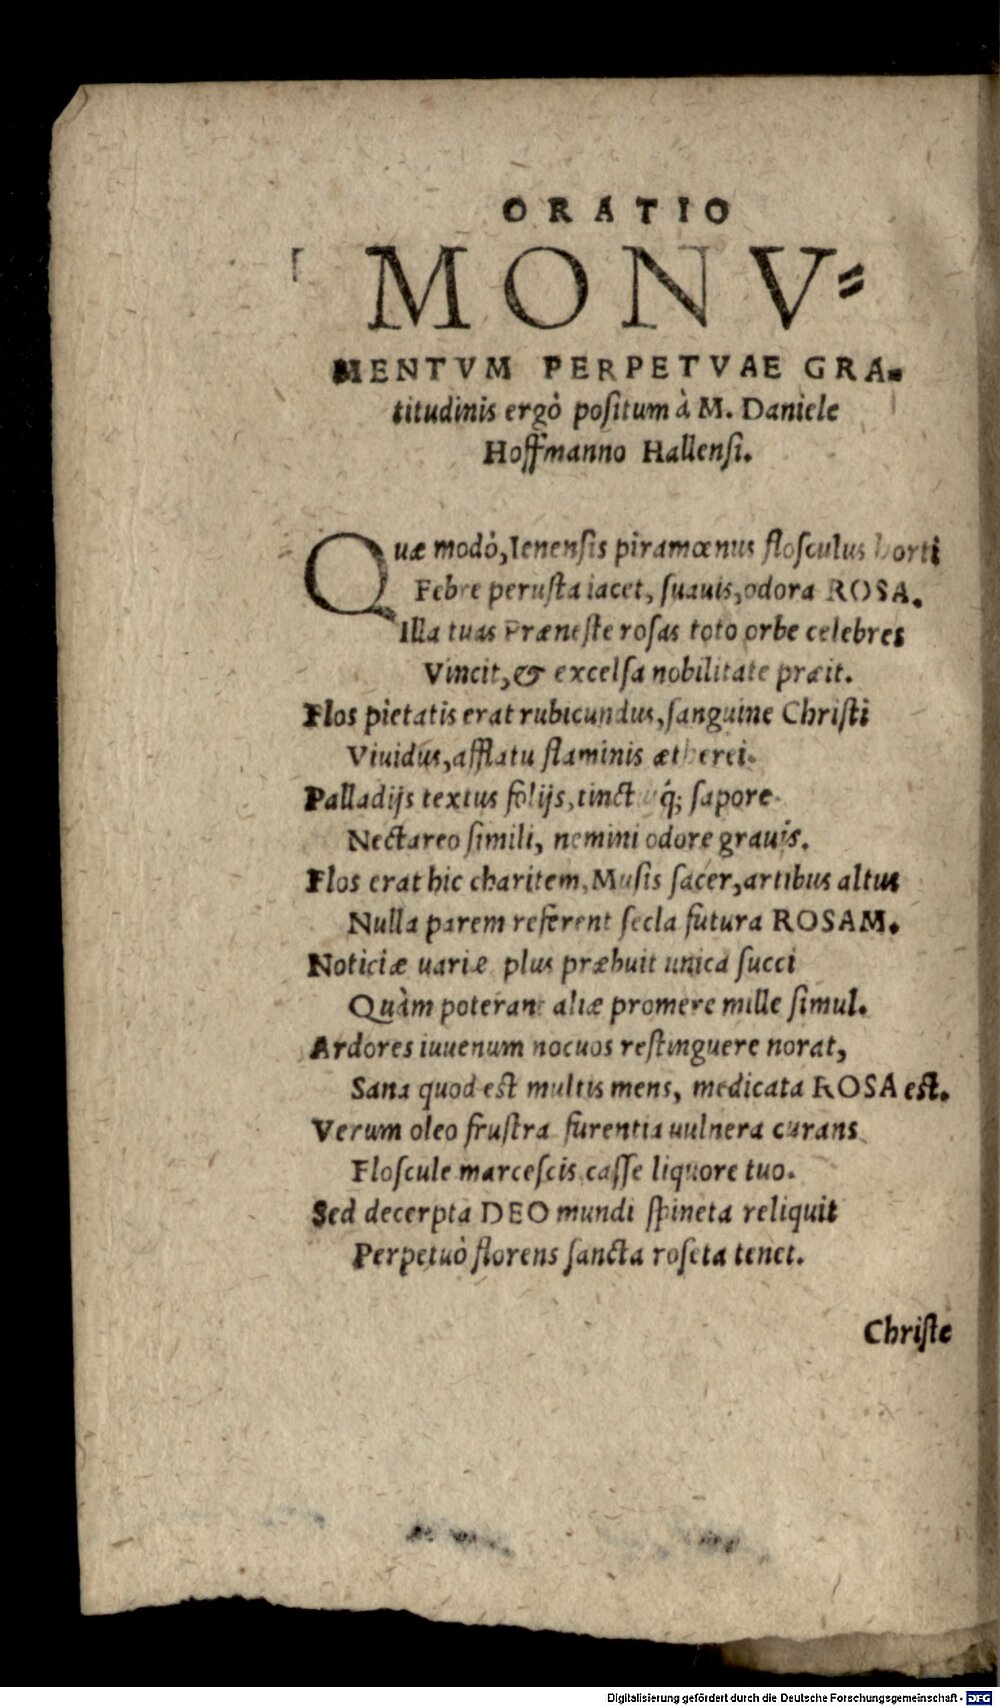 ORATIO
MONV⸗
MENTVM PERPETVAE GRA⸗
titudinis ergò poſitum à M. Daniele
Hoffmanno Hallenſi.
Quæ modò, Ienenſis piramœnus floſculus horti
Febre peruſta iacet, ſuauis, odora ROSA.
Illa tuas Præneſte roſas toto orbe celebres
Vincit, & excelſa nobilitate præit.
Flos pietatis erat rubicundus, ſanguine Chriſti
Viuidus, afflatu flaminis ætherei.
Palladijs textus folijs, tinctuq́; ſapore
Nectareo ſimili, nemini odore grauis.
Flos erat hic charitem, Muſis ſacer, artibus altus
Nulla parem referent ſecla futura ROSAM.
Noticiæ uariæ plus præbuit unica ſucci
Quàm poterant aliæ promere mille ſimul.
Ardores iuuenum nocuos reſtinguere norat,
Sana quod eſt multis mens, medicata ROSA eſt.
Verum oleo fruſtra furentia uulnera curans
Floſcule marceſcis caſſe liquore tuo.
Sed decerpta DEO mundi ſpineta reliquit
Perpetuò florens ſancta roſeta tenet.
Chriſte
Digitalisierung gefördert durch die Deutsche Forschungsgemeinschaft - DFG